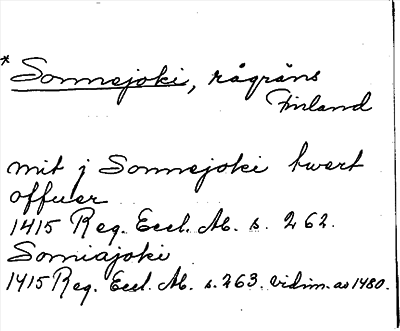 * Sonnejoki, rågräns
Finland
mit j Sonnejoki twert
offuer
1415 Reg. Eccl. Ab. s. 262.
Somiajoki
1415 Reg. Eccl. Ab. s. 263. vidim. av 1480.